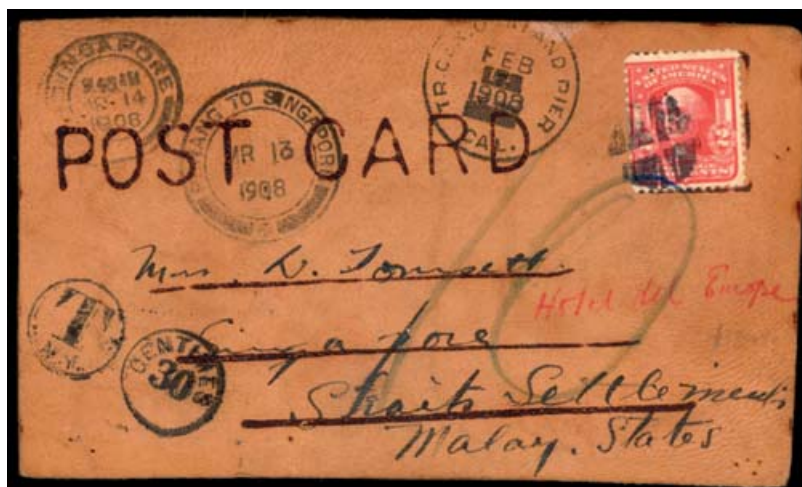 SINGAPORE
14
1908
PENANG TO SINGAPORE
MR 13
1908
TR. CLK. OAKLAND PIER
FEB
1908
CAL.
UNITED STATES
OF AMERICA
2
POST CARD
10
Mrs. D. Tomsett.
Hotel de l'Europe
Singapore
Straits Settlements
Malay. States
T
N.Y.
CENTIMES
30